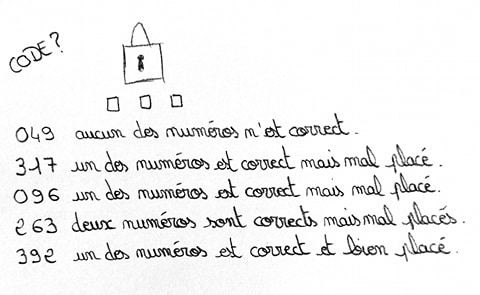 CODE?
049 aucun des numéros n'est correct.
317 un des numéros est correct mais mal placé.
096 un des numéros est correct mais mal placé.
263 deux numéros sont corrects mais mal placés.
392 un des numéros est correct et bien placé.